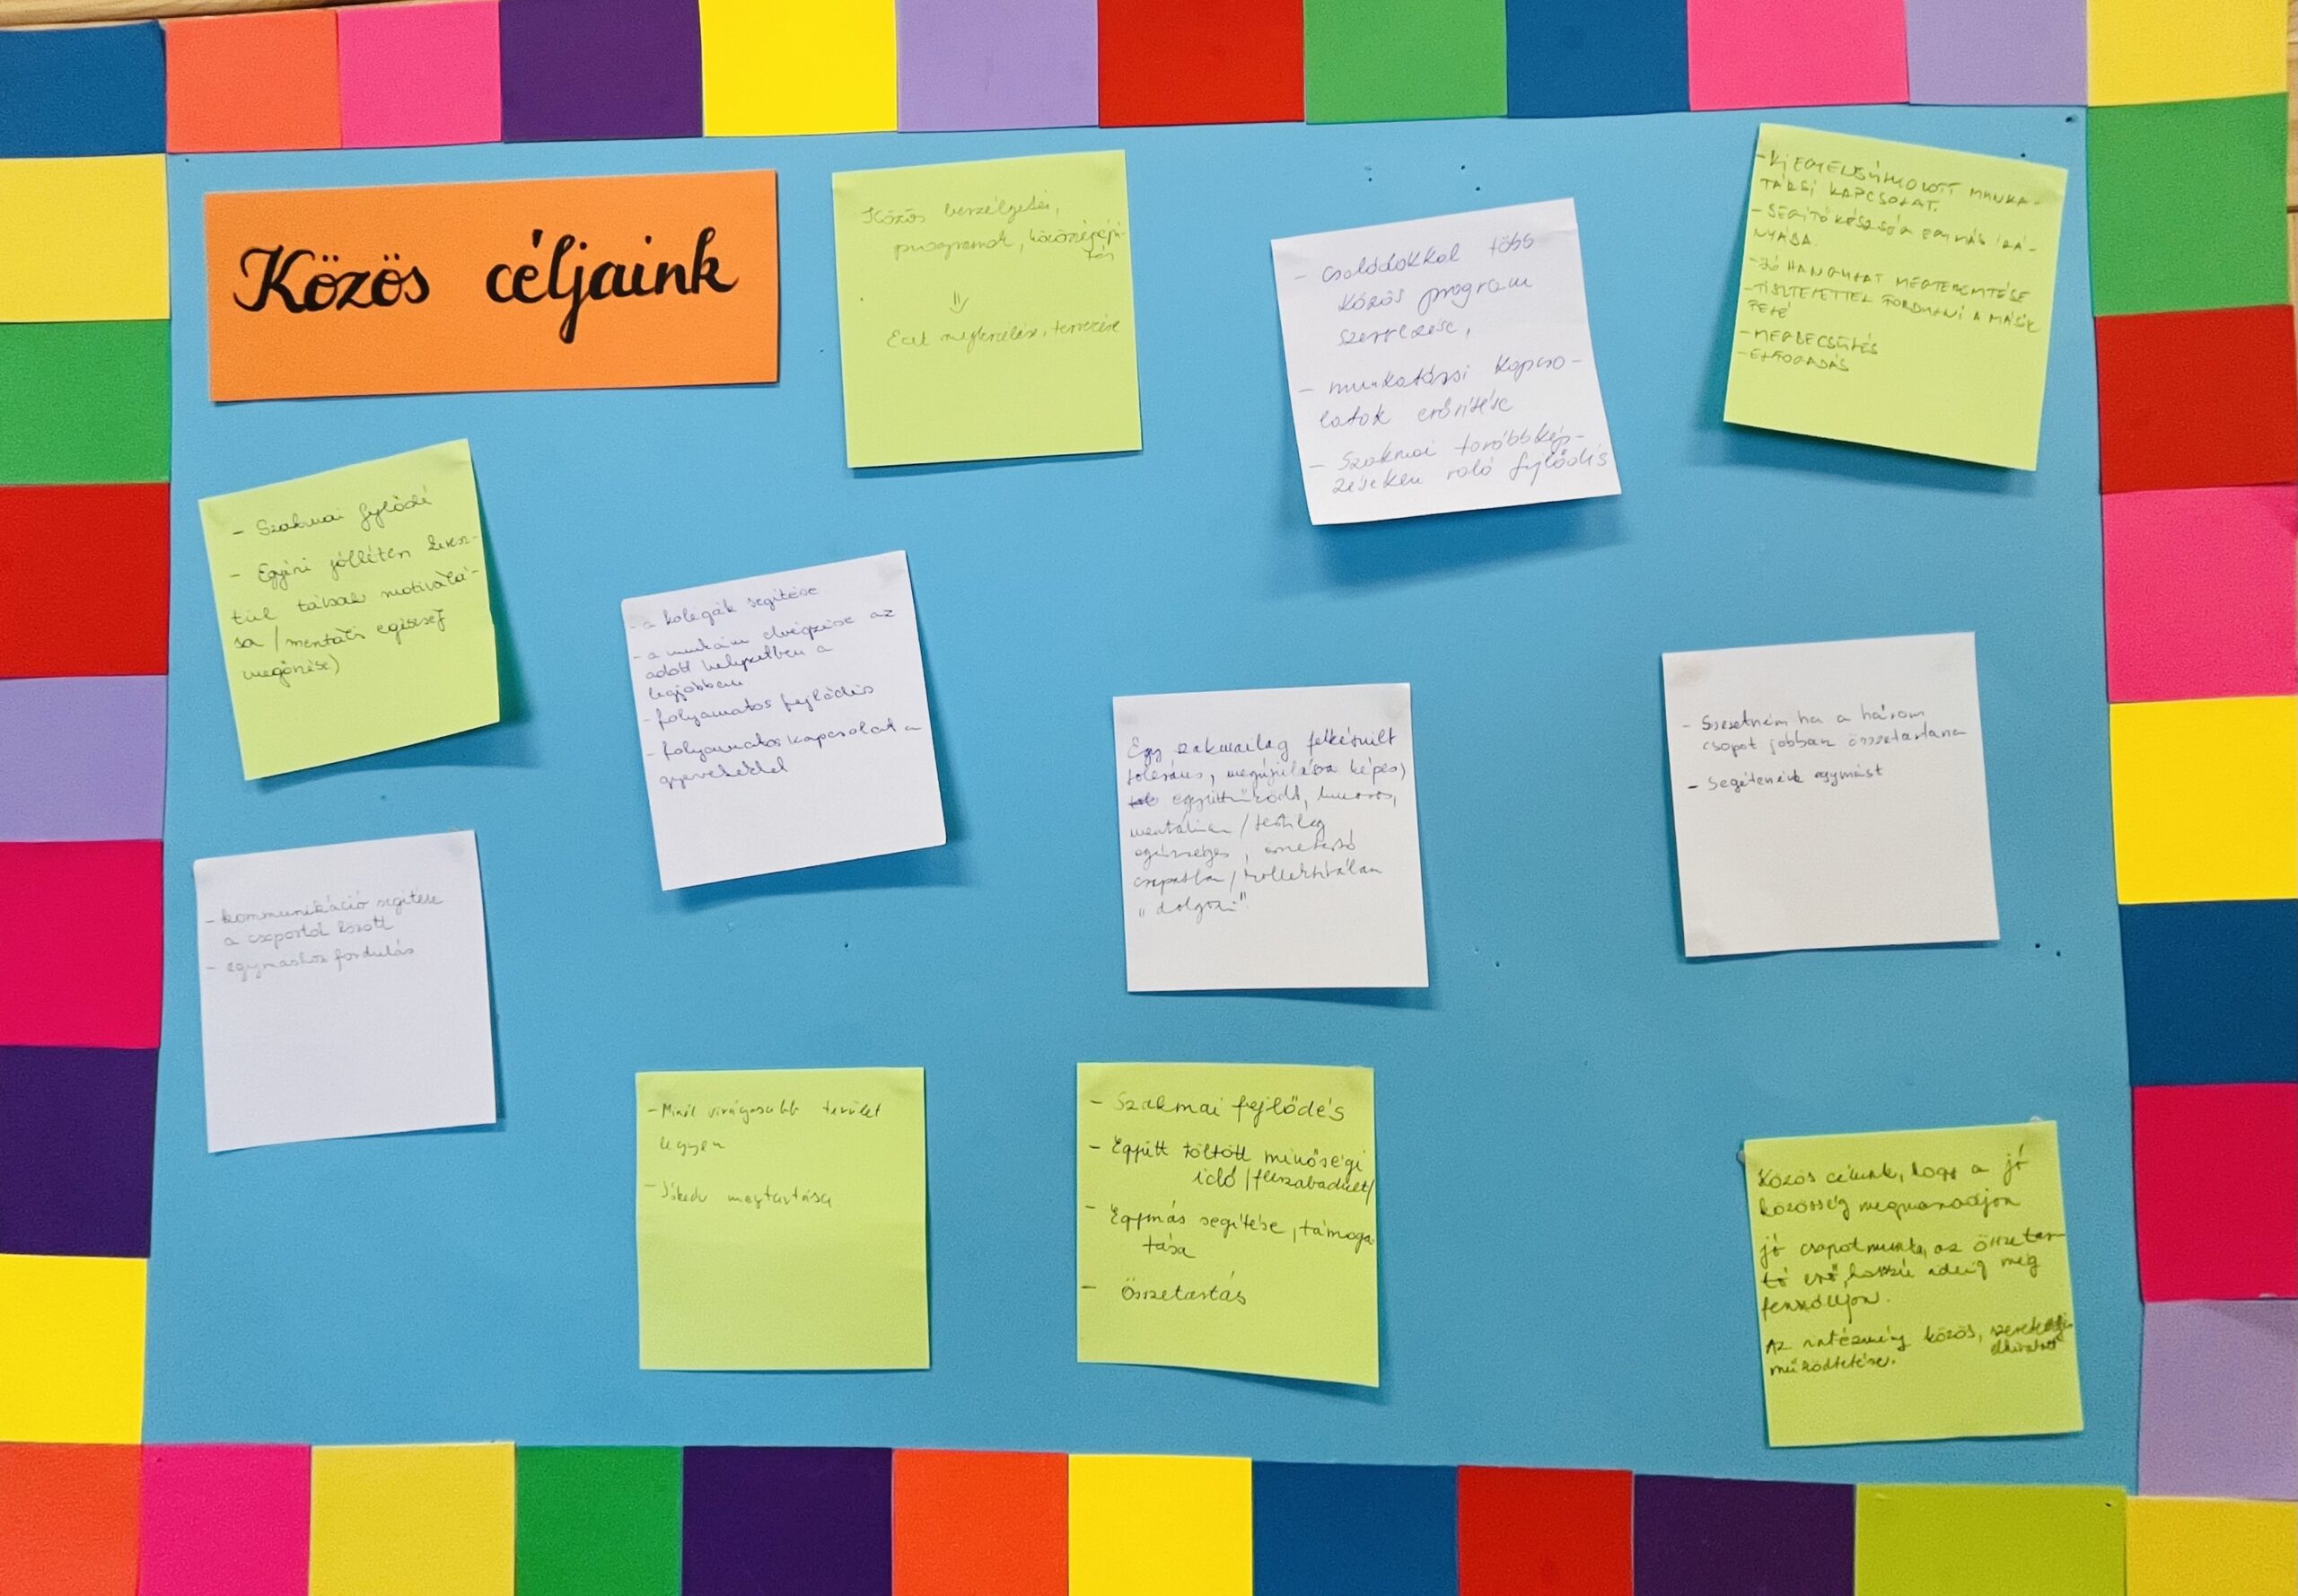 Közös céljaink
Közös beszélgetés,
programok, közösségépí-
tés
Ezek megbeszélése, tervezése
- Családokkal több
közös program
szervezése,
- munkatársi kapcso-
latok erősítése
- Szakmai továbbkép-
zéseken való fejlődés
- KIEGYENSÚLYOZOTT MUNKA-
TÁRSI KAPCSOLAT.
- SEGÍTŐKÉSZSÉG EGYMÁS IRÁ-
NYÁBA.
- JÓ HANGULAT MEGTEREMTÉSE
- TISZTELETTEL FORDULNI A MÁSIK
FELÉ
- MEGBECSÜLÉS
- ELFOGADÁS
- Szakmai fejlődé
- Egyéni jólléten keresz-
tül társak motiválá-
sa / mentális egészség
megőrzése)
- a kolégák segítése
- a munkám elvégzése az
adott helyzetben a
legjobban
- folyamatos fejlődés
- folyamatos kapcsolat a
gyerekekkel
Egy szakmailag felkészült
toleráns, megújulásra képes,
együttműködő, humoros,
mentálisan / testileg
egészséges, összetartó
csapatban / kollektívában
"dolgozni"
- Szeretném ha a három
csopot jobban összetartana
- Segítenénk egymást
- kommunikáció segítése
a csoportok között
- egymáshoz fordulás
- Minél virágosabb terület
legyen
- Jókedv megtartása
- Szakmai fejlődés
- Együtt töltött minőségi
idő / felszabadult /
- Egymás segítése, támoga-
tása
- Összetartás
Közös célunk, hogy a jó
közösség megmaradjon
jó csapatmunka, az összetar-
tó erő, hosszú ideig még
fennálljon.
Az intézmény közös,
működtetése.